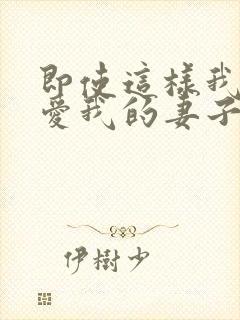 即使這樣我
愛我的妻子
伊樹少